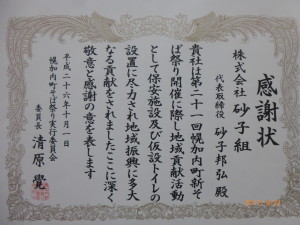 感謝状
株式会社 砂子組
代表取締役 砂子邦弘 殿
貴社は第二十一回幌加内町新そ
ば祭り開催に際し地域貢献活動
として保安施設及び仮設トイレの
設置に尽力され地域振興に多大
なる貢献をされましたここに深く
敬意と感謝の意を表します
平成二十六年十月一日
幌加内町そば祭り実行委員会
委員長 清原 覺